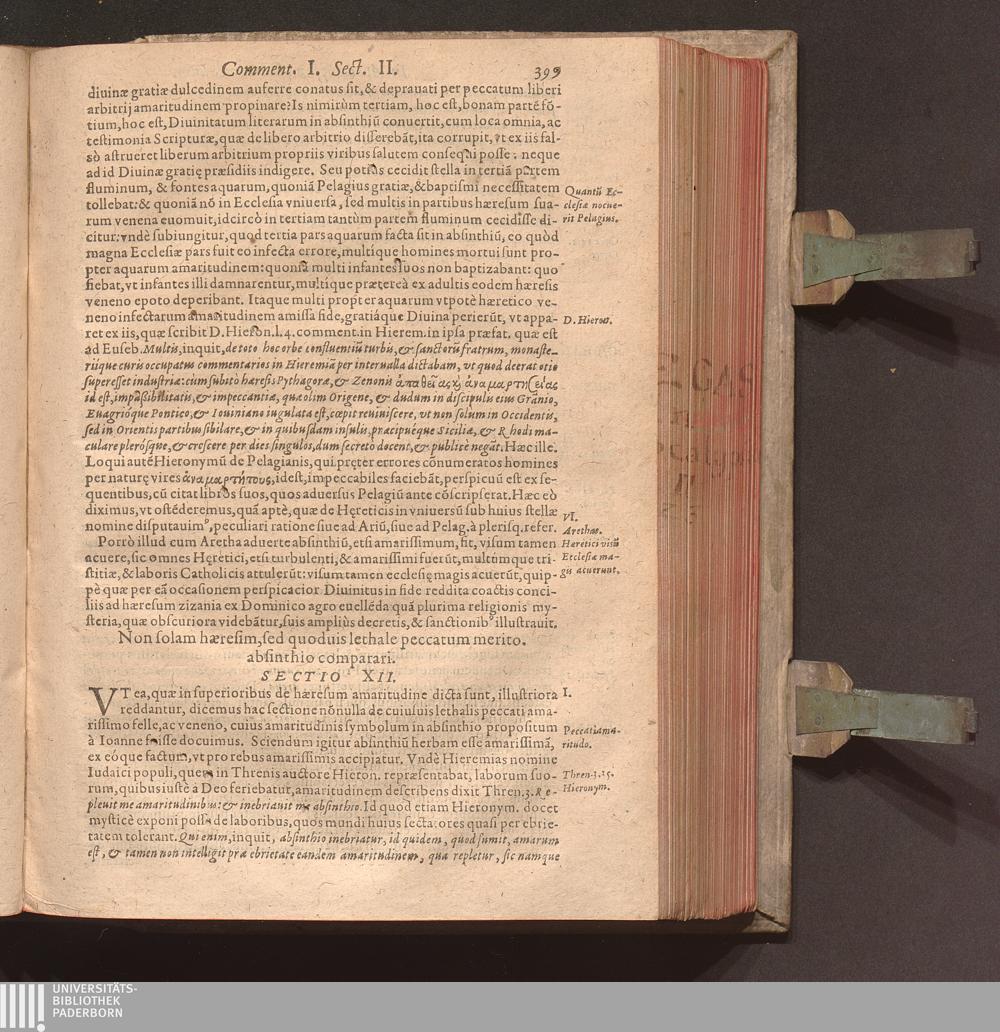 Comment. I. Sect. II. 399
diuinæ gratiæ dulcedinem auferre conatus sit, & deprauati per peccatum liberi
arbitrij amaritudinem propinare? Is nimirùm tertiam, hoc est, bonam partẽ fõ-
tium, hoc est, Diuinitatum literarum in absinthiũ conuertit, cum loca omnia, ac
testimonia Scripturæ, quæ de libero arbitrio disserebãt, ita corrupit, vt ex iis fal-
sò astrueret liberum arbitrium propriis viribus salutem consequi posse: neque
ad id Diuinæ gratię præsidiis indigere. Seu potiùs cecidit stella in tertiã partem
fluminum, & fontes aquarum, quoniã Pelagius gratiæ, & baptismi necessitatem
tollebat: & quoniã nõ in Ecclesia vniuersa, sed multis in partibus hæresum sua-
rum venena euomuit, idcircò in tertiam tantùm partem fluminum cecidisse di-
citur: vndè subiungitur, quod tertia pars aquarum facta sit in absinthiũ, eo quòd
magna Ecclesiæ pars fuit eo infecta errore, multique homines mortui sunt pro-
pter aquarum amaritudinem: quoniã multi infantes suos non baptizabant: quo
fiebat, vt infantes illi damnarentur, multíque prætereà ex adultis eodem hæresis
veneno epoto deperibant. Itaque multi propter aquarum vtpotè hæretico ve-
neno infectarum amaritudinem amissa fide, gratiáque Diuina perierũt, vt appa-
ret ex iis, quæ scribit D. Hieron. l. 4. comment. in Hierem. in ipsa præfat. quæ est
ad Euseb. Multis, inquit, de toto hoc orbe confluentiũ turbis, & sanctorũ fratrum, monaste-
riíque curis occupatus commentarios in Hieremiã per interualla dictabam, vt quod deerat otio
superesset industriæ: cùm subitò hæresis Pythagoræ, & Zenonis ἀπαθείας κỳ ἀναμαρτησίας
id est, impaßibilitatis, & impeccantiæ, quæ olim Origene, & dudum in discipulis eius Grãnio,
Euagrióque Pontico, & Iouiniano iugulata est, cœpit reuiuiscere, vt non solùm in Occidentis,
sed in Orientis partibus sibilare, & in quibusdam insulis, præcipuéque Siciliæ, & Rhodi ma-
culare plerósque, & crescere per dies singulos, dum secreto docent, & publicè negãt. Hæc ille.
Loqui autẽ Hieronymũ de Pelagianis, qui pręter errores cõnumeratos homines
per naturę vires ἀναμαρτήτους, id est, impeccabiles faciebãt, perspicuũ est ex se-
quentibus, cũ citat libros suos, quos aduersus Pelagiũ ante cõscripserat. Hæc eò
diximus, vt ostẽderemus, quã aptè, quæ de Hęreticis in vniuersũ sub huius stellæ
nomine disputauimꝰ, peculiari ratione siue ad Ariũ, siue ad Pelag. à plerisq. refer.
Porrò illud cum Aretha aduerte absinthiũ, etsi amarissimum, fit, visum tamen
acuere, sic omnes Hęretici, etsi turbulenti, & amarissimi fuerũt, multũmque tri-
stitiæ, & laboris Catholicis attulerũt: visum tamen ecclesię magis acuerũt, quip-
pè quæ per eã occasionem perspicacior Diuinitus in fide reddita coactis conci-
liis ad hæresum zizania ex Dominico agro euellẽda quã plurima religionis my-
steria, quæ obscuriora videbãtur, suis ampliùs decretis, & sanctionibꝰ illustrauit.
Non solam hæresim, sed quoduis lethale peccatum merito.
absinthio comparari.
SECTIO XII.
VT ea, quæ in superioribus de hæresum amaritudine dicta sunt, illustriora
reddantur, dicemus hac sectione nõnulla de cuiusuis lethalis peccati ama-
rissimo felle, ac veneno, cuius amaritudinis symbolum in absinthio propositum
à Ioanne fuisse docuimus. Sciendum igitur absinthiũ herbam esse amarissimã,
ex eóque factum, vt pro rebus amarissimis accipiatur. Vndè Hieremias nomine
Iudaici populi, quem in Threnis auctore Hieron. repræsentabat, laborum suo-
rum, quibus iustè à Deo feriebatur, amaritudinem describens dixit Thren. 3. Re-
pleuit me amaritudinibus: & inebriauit me absinthio. Id quod etiam Hieronym. docet
mysticè exponi posse de laboribus, quos mundi huius sectatores quasi per ebrie-
tatem tolerant. Qui enim, inquit, absinthio inebriatur, id quidem, quod sumit, amarum
est, & tamen non intelligit præ ebrietate eandem amaritudinem, qua repletur, sic namque
Quantũ Ec-
clesiæ nocue-
rit Pelagius.
D. Hieron.
VI.
Arethas.
Hæretici visũ
Ecclesiæ ma-
gis acuerunt.
I.
Peccati ama-
ritudo.
Thren. 3. 15.
Hieronym.
UNIVERSITÄTS-
BIBLIOTHEK
PADERBORN